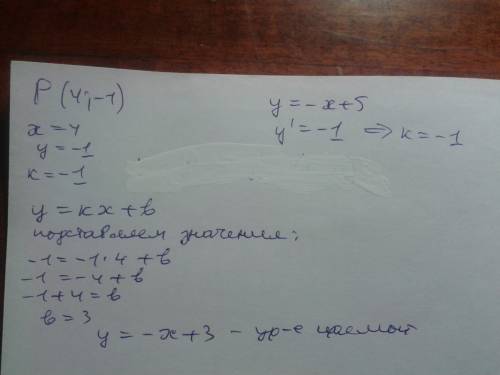 P (4; -1)
x = 4
y = -1
k = -1
y = -x + 5
y' = -1 ⇒ k = -1
y = kx + b
подставляем значения:
-1 = -1 · 4 + b
-1 = -4 + b
-1 + 4 = b
b = 3
y = -x + 3 - ур-е прямой